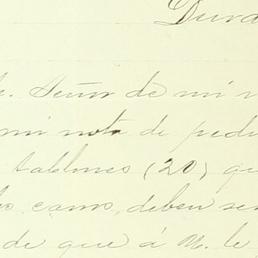 Dura
Señor de mi
mi nota de pedi
tablones (20) qu
camo, deben se
de que á M. le